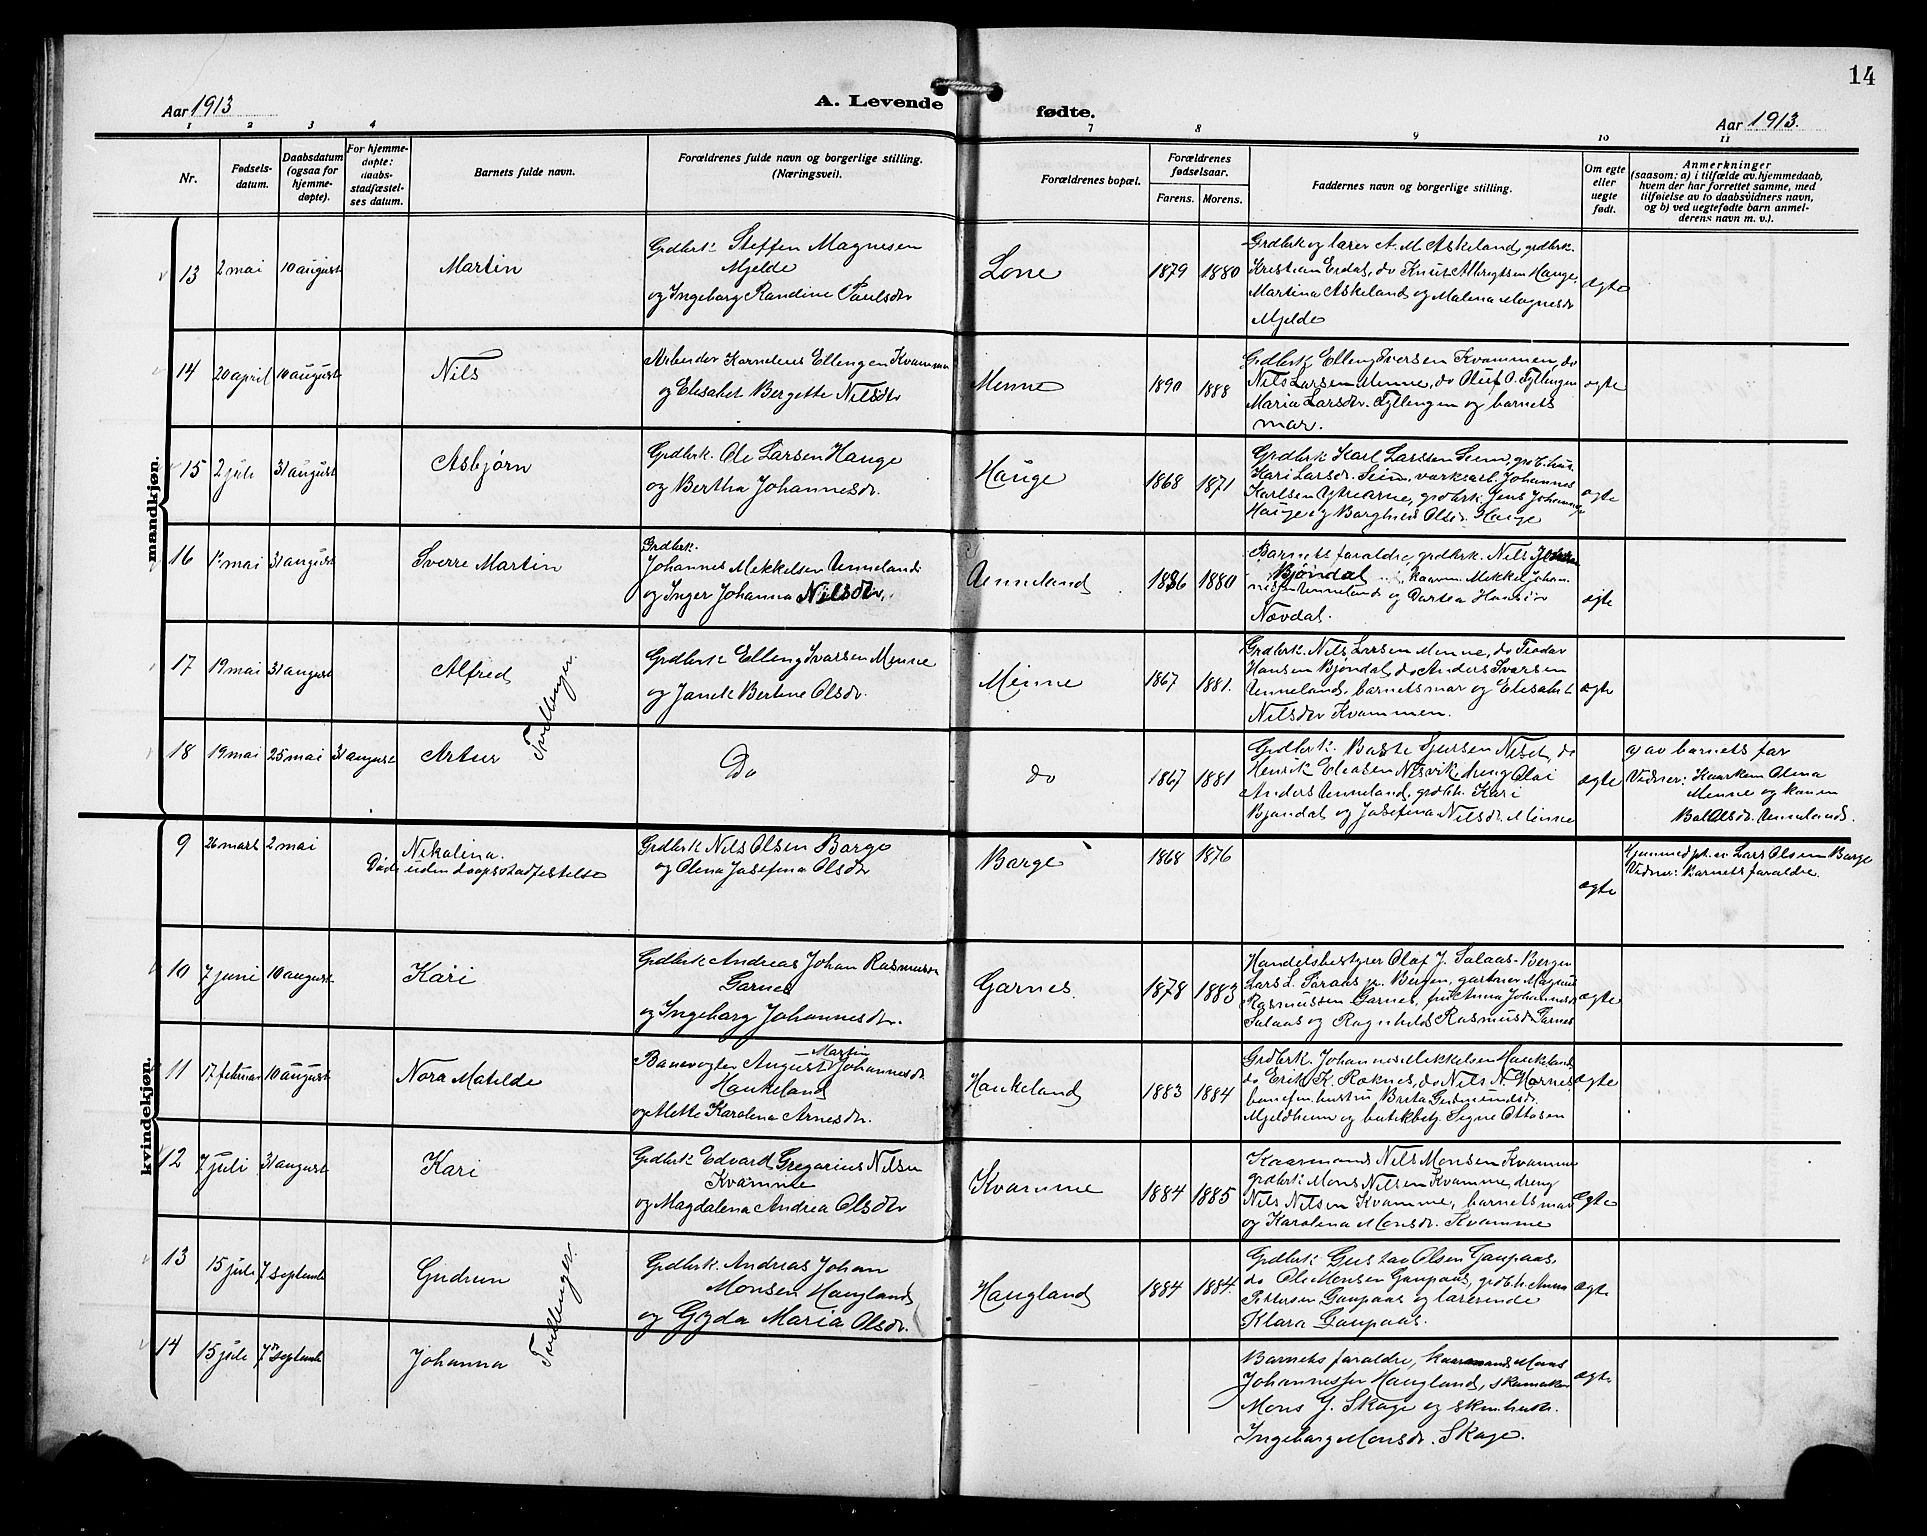 14
Aar 1913
A. Levende
fødte.
Aar 1913.
1 2 3 4 7 8 9 10 11
Nr.
Fødsels-
datum.
Daabsdatum
(ogsaa for
hjemme-
døpte).
For hjemme-
døpte:
daabs-
stadfæstel-
ses datum.
Barnets fulde navn.
Forældrenes fulde navn og borgerlige stilling.
(Næringsvei).
Forældrenes bopæl.
Forældrenes
fødselsaar.
Farens. Morens.
Faddernes navn og borgerlige stilling.
Om egte
eller
uegte
født.
Anmerkninger
(saasom: a) i tilfælde av hjemmedaab,
hvem der har forrettet samme, med
tilføielse av to daabsvidners navn,
og b) ved uegtefødte barn anmel-
derens navn m. v.).
mandkjøn.
13 2 mai 10 august Martin
Grdbrk Steffen Magnesen
Mjelde
og Ingeborg Randine Paulsdr
Lone 1879 1880
Grdbrk og lærer A. M. Askeland, grdbrk.
Kristian Erdal, do Knut Albregtsen Hauge,
Martina Askeland og Malena Magnesdr
Mjelde
ægte
14 20 april 10 august Nils
Arbeider Kornelius Ellengen Kvamme
og Elisabet Bergette Nilsdtr
Menne 1890 1888
Grdbrk Elleng Iversen Kvammen, do
Nils Larsen Menne, do Oluf O. Tyllengen
Maria Larsdr. Tyllengen og barnets
mor.
ægte
15 2 juli 31 august Asbjørn
Grdbrk. Ole Larsen Hauge
og Bertha Johannesdr.
Hauge 1868 1871
Grdbrk Karl Larssen Seim, grdb.hus.
Kari Larsdr. Seim, verksarb. Johannes
Karlsen Ytrearne, grdbrk Jens Johannes
Hauge og Borghild Olsdr. Hauge
ægte
16 1 mai 31 august Sverre Martin
Grdbrk.
Johannes Mekkelsen Unneland
og Inger Johanna Nilsdtr.
Unneland 1886 1880
Barnets foraldre, grdbrk. Nils
Bjøndal kaarm. Mekkel Johan-
nessen Unneland og Dortea Hansdr
Nævdal.
ægte
17 19 mai 31 august Alfred
Tvillinger.
Grdbrk Elleng Ivarsen Menne
og Janck Bertine Olsdr.
Menne 1867 1881.
Grdbrk. Nils Larsen Menne, do Teodor
Hansen Bjøndal, do Anders Ivarsen
Unneland, barnets mor og Elisabet
Nilsdtr Kvammen.
ægte
18 19 mai 25 mai 31 august Artur
Do
do 1867 1881
Grdbrk. Baste Sjursen Neset, do
Henrik Eliasen Nesvik, ung Olai
Anders Unneland, grdbh. Kari
Bjøndal og Josefina Nilsdr. Menne
ægte
a) av barnets far
Vidner: Kaarkon Olina
Menne og konen
Bol Olsdr. Unneland.
kvindekjøn.
9 26 mars 2 mai Nikolina.
Død uden daapsstadfestelse
Grdbrk Nils Olsen Borge
og Olena Josefina Olsdr
Borge 1868 1876
ægte
Hjemmedøpt av Lars Olsen Borge
Vidner: Barnets foraldre.
10 7 juni 10 august Kari
Grdbrk Andreas Johan Rasmussen
Garnes
og Ingeborg Johannesdr.
Garnes. 1878 1883
Handelsbestyrer Olaf J. Salaas-Bergen
Lars L. Toraas pr. Bergen, gartner Magnus
Rasmussen Garnes, frk Anna Johannesdr
Salaas og Ragnhild Rasmusdr Garnes
ægte
11 17 februar 10 august Nora Matilde
Banevogter August Martin Johannesdr
Haukeland
og Mette Karolina Arnesdr.
Haukeland 1883 1884
Grdbrk. Johannes Mekkelsen Haukeland
do Erik K. Roknes, do Nils N. Hornes,
baneform. hustru Brita Gudmundsdr.
Mjeldheim og butikbetj. Signe Ottosen
ægte
12 7 juli 31 august Kari
Grdbrk Edvard Gregarius Nilsen
Kvamme
og Magdalena Andrea Olsdtr
Kvamme 1884 1885
Kaarmand Nils Monsen Kvamme
grdbrk Mons Nilsen Kvamme, dreng
Nils Nilsen Kvamme, barnets mor
og Karolina Monsdr. Kvamme
Ægte
13 15 juli 7 septembr Gudrun
Tvillinger.
Grdbrk. Andreas Johan
Monsen Haugland
og Gyda Maria Olsdr.
Haugland 1884 1884.
Grdbrk Gustav Olsen Gaupaas,
do Ole Monsen Gaupaas, grdbh. Anna
Pettersen Gaupaas og lærerinde
Klara Gaupaas.
ægte
14 15 juli 7 septembr Johanna
Barnets foraldre, kaarmand Mons
Johannessen Haugland, skomaker
Mons J. Skage og skm.hustr.
Ingeborg Monsdr. Skage.
ægte